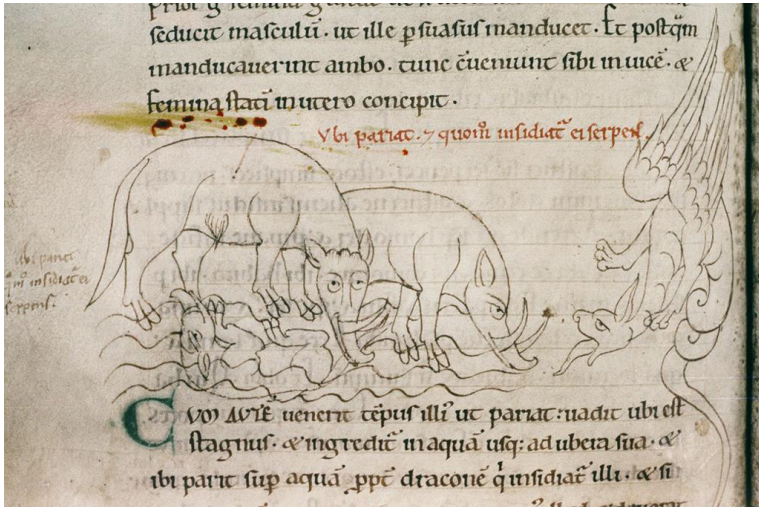 seducit masculū. ut ille p̱suasus manducet. Et postq̄m
manducauerint ambo. tunc c̄ueniunt sibi inuicē. &
femina statī in utero concipit.
Vbi pariat. ⁊ quom̄ insidiat᷑ ei serpens.
ubi pariat
insidiat᷑ ei
serpens.
CVM AVTĒ uenerit tēpus illi᷒ ut pariat: uadit ubi est
stagnus. & ingredit᷑ in aquā usq; ad ubera sua. &
ibi parit sup̱ aquā. ꝓpt̄ draconē q̇ insidiat᷑ illi. & si